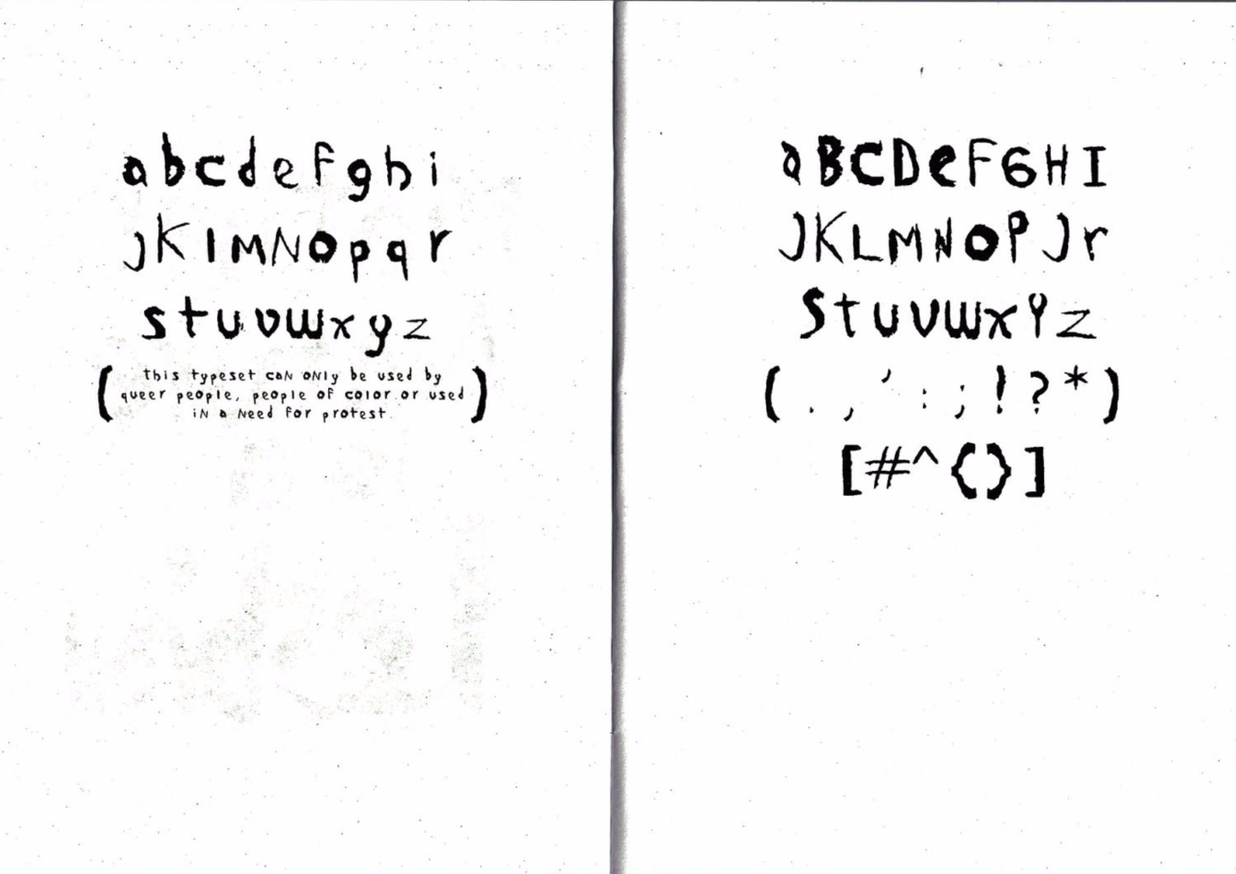 a b c d e F g h i
j K l M N o p q r
s t u v w x y z
( this typeset caN oNly be used by
queer people, people of color or used
iN a Need for protest. )
a B C D e F G H I
J K L M N O P J r
S t u v w x Y z
( . , ' : ; ! ? * )
[ # ^ { } ]